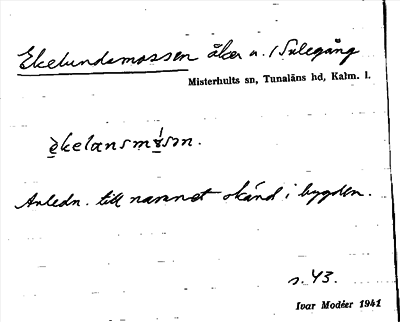 Ekelundsmossen åker u. Sulegång
Misterhults sn, Tunaläns hd, Kalm. l.
èkelansmåsən.
Anledn. till namnet okänd i bygden.
s. 43.
Ivar Modéer 1941